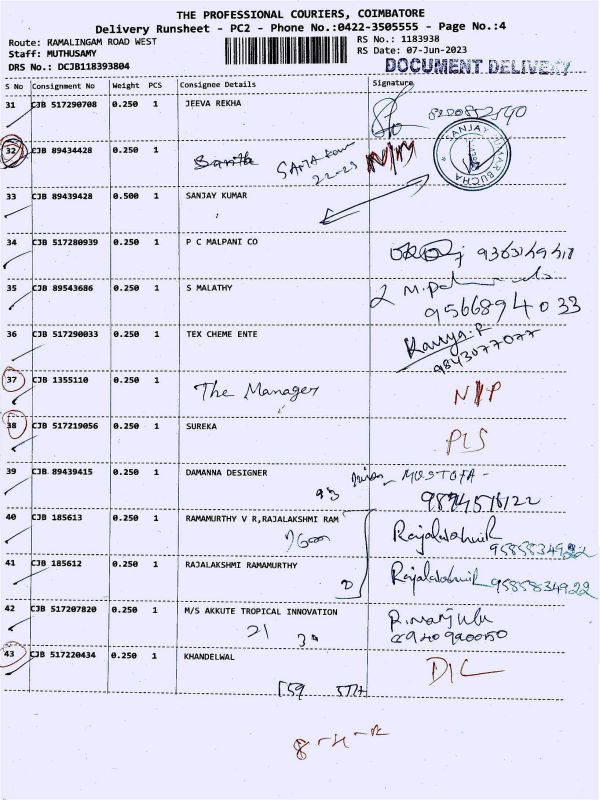 THE PROFESSIONAL COURIERS, COIMBATORE
Delivery Runsheet - PC2 - Phone No.:0422-3505555 - Page No.:4
Route: RAMALINGAM ROAD WEST
RS No.: 1183938
Staff: MUTHUSAMY
RS Date: 07-Jun-2023
DRS No.: DCJB118393804
DOCUMENT DELIVERY
S No Consignment No Weight PCS Consignee Details Signature
31 CJB 517290708 0.250 1 JEEVA REKHA
32 CJB 89434428 0.250 1 N/M
SANJAY KUMAR BUCHA
33 CJB 89439428 0.500 1 SANJAY KUMAR
34 CJB 517280939 0.250 1 P C MALPANI CO
35 CJB 89543686 0.250 1 S MALATHY
9566894033
36 CJB 517290033 0.250 1 TEX CHEME ENTE Kavya.R
9843077077
37 CJB 1355110 0.250 1 The Manager N/P
38 CJB 517219056 0.250 1 SUREKA PLS
39 CJB 89439415 0.250 1 DAMANNA DESIGNER MUSTOFA -
40 CJB 185613 0.250 1 RAMAMURTHY V R,RAJALAKSHMI RAM
9585834922
41 CJB 185612 0.250 1 RAJALAKSHMI RAMAMURTHY
9585834922
42 CJB 517207820 0.250 1 M/S AKKUTE TROPICAL INNOVATION R.manjula
21
43 CJB 517220434 0.250 1 KHANDELWAL D/L